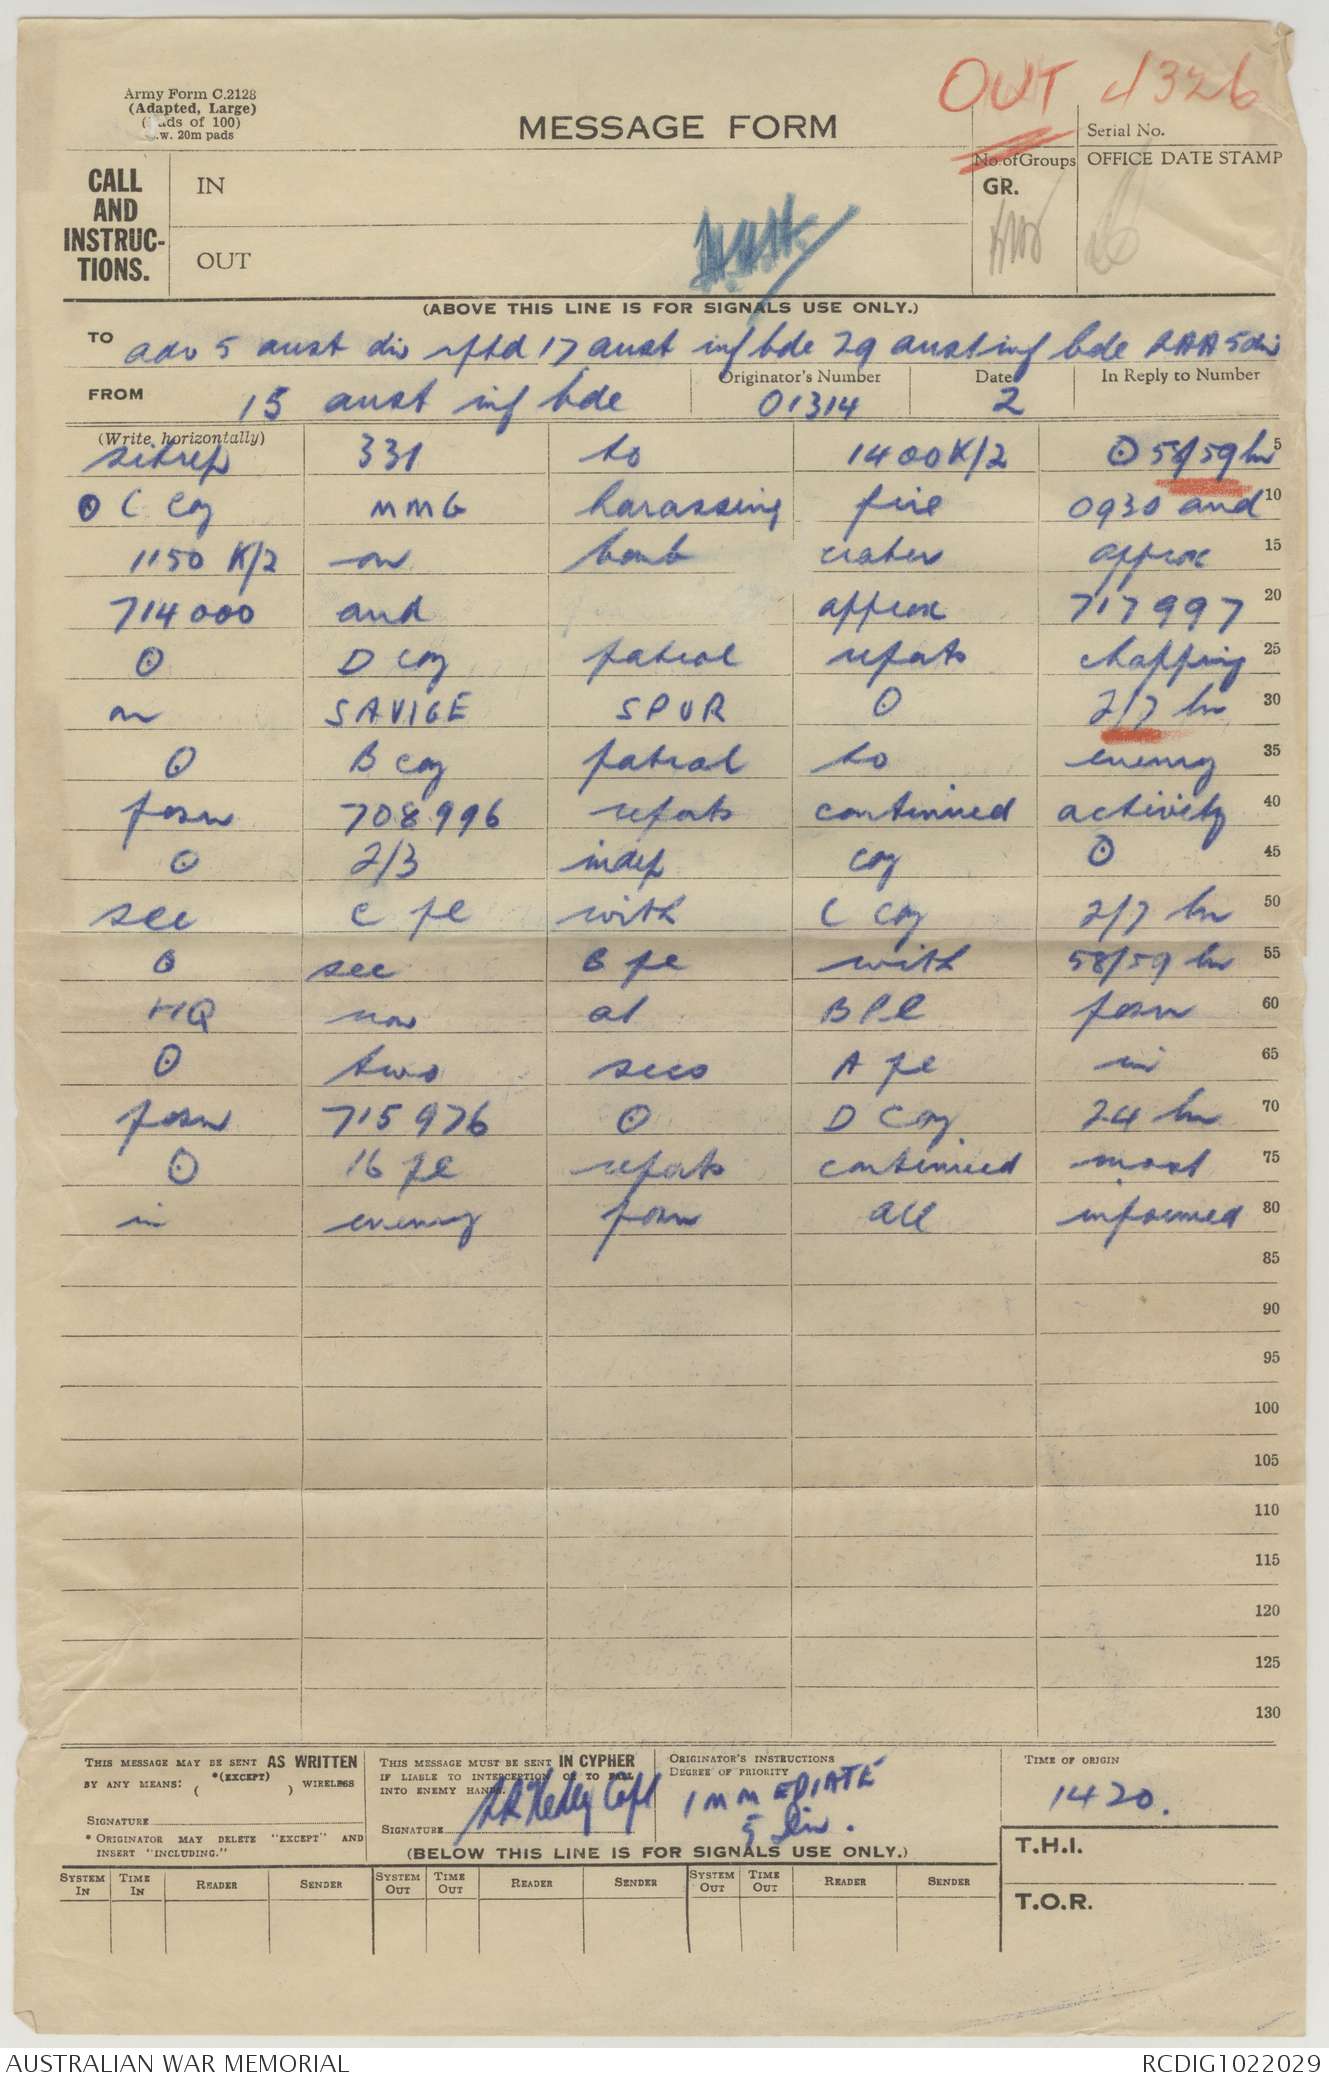 OUT 4326
Army Form C.2128
(Adapted, Large)
(Pads of 100)
.w. 20m pads
MESSAGE FORM
Serial No.
No. of Groups
GR.
OFFICE DATE STAMP
CALL
AND
INSTRUC-
TIONS.
IN
OUT
(ABOVE THIS LINE IS FOR SIGNALS USE ONLY.)
TO adv 5 aust div rptd 17 aust inf bde 29 aust inf bde RAA 5 div
FROM 15 aust inf bde
Originator's Number 01314
Date 2
In Reply to Number
(Write horizontally)
sitrep 331 to 1400K/2 ⊙ 58/59 bn 5
⊙ C coy MMG harassing fire 0930 and 10
1150 K/2 on bomb crater approx 15
714000 and approx 717997 20
⊙ D coy patrol reports chopping 25
on SAVIGE SPUR ⊙ 2/7 bn 30
⊙ B coy patrol to enemy 35
posn 708996 reports continued activity 40
⊙ 2/3 indep coy ⊙ 45
sec C pl with C coy 2/7 bn 50
⊙ sec B pl with 58/59 bn 55
HQ now at B Pl posn 60
⊙ two secs A pl in 65
posn 715976 ⊙ D Coy 24 bn 70
⊙ 16 pl reports continued movt 75
in enemy posn all informed 80
85
90
95
100
105
110
115
120
125
130
THIS MESSAGE MAY BE SENT AS WRITTEN
BY ANY MEANS: *(EXCEPT) ( ) WIRELESS
SIGNATURE
* ORIGINATOR MAY DELETE "EXCEPT" AND
INSERT "INCLUDING."
THIS MESSAGE MUST BE SENT IN CYPHER
IF LIABLE TO INTERCEPTION OR TO FALL
INTO ENEMY HANDS.
SIGNATURE Capt
ORIGINATOR'S INSTRUCTIONS
DEGREE OF PRIORITY
IMMEDIATE
5 Div.
TIME OF ORIGIN
1420.
T.H.I.
T.O.R.
(BELOW THIS LINE IS FOR SIGNALS USE ONLY.)
SYSTEM IN TIME IN READER SENDER SYSTEM OUT TIME OUT READER SENDER SYSTEM OUT TIME OUT READER SENDER
AUSTRALIAN WAR MEMORIAL
RCDIG1022029